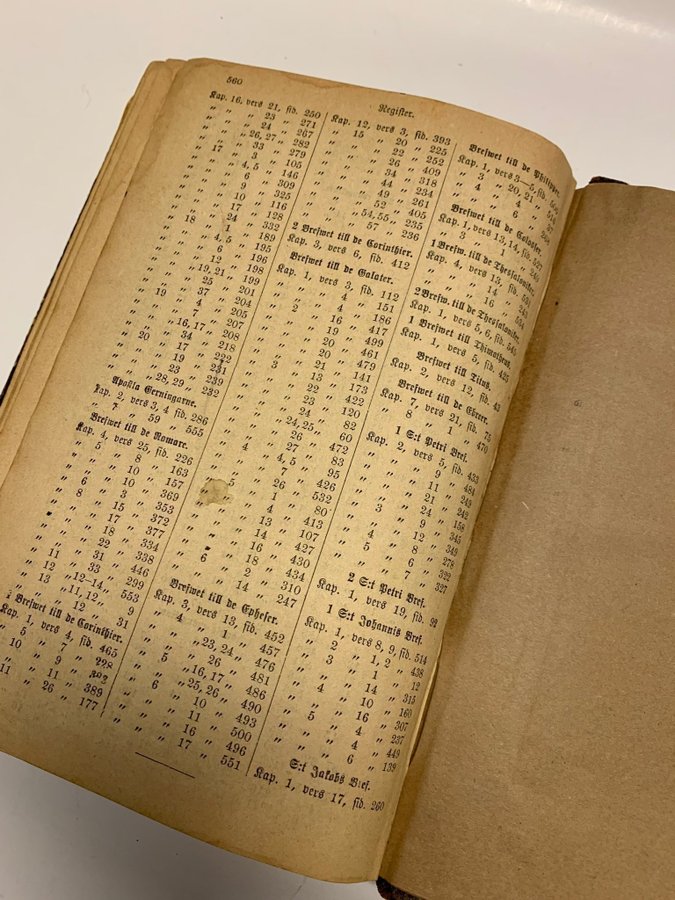 560
Register.
Kap. 16, vers 21, sid. 250
„ „ „ 23 „ 271
„ „ „ 24 „ 267
„ „ „ 26, 27 „ 282
„ „ „ 33 „ 279
„ 17 „ 3 „ 105
„ „ „ 4, 5 „ 146
„ „ „ 6 „ 309
„ „ „ 9 „ 325
„ „ „ 10 „ 116
„ „ „ 17 „ 128
„ „ „ 24 „ 332
„ 18 „ 1 „ 189
„ „ „ 4, 5 „ 195
„ „ „ 6 „ 196
„ „ „ 12 „ 198
„ „ „ 19, 21 „ 199
„ „ „ 25 „ 201
„ „ „ 37 „ 204
„ 19 „ 4 „ 205
„ „ „ 7 „ 207
„ „ „ 16, 17 „ 208
„ „ „ 34 „ 218
„ 20 „ 17 „ 222
„ „ „ 19 „ 231
„ „ „ 23 „ 239
„ „ „ 28, 29 „ 232
Apostla Gerningarne.
Kap. 2, vers 3, 4 sid. 286
„ 7 „ 59 „ 555
Brefwet till de Romare.
Kap. 4, vers 25, sid. 226
„ 5 „ 8 „ 163
„ „ „ 10 „ 157
„ „ „ 10 „ 369
„ 6 „ 3 „ 353
„ 8 „ 15 „ 372
„ „ „ 17 „ 377
„ „ „ 18 „ 334
„ „ „ 22 „ 338
„ „ „ 31 „ 446
„ 11 „ 33 „ 299
„ 12 „ 12–14 „ 553
„ 13 „ 11, 12 „ 9
„ „ „ 12 „ 31
1 Brefwet till de Corinthier.
Kap. 1, vers 4, sid. 465
„ 5 „ 7 „ 228
10 „ 9 „ 303
„ „ 11 „ 389
11 „ 26 „ 177
Kap. 12, vers 3, sid. 393
„ 15 „ 20 „ 225
„ „ „ 22 „ 252
„ „ „ 26 „ 409
„ „ „ 34 „ 318
„ „ „ 44 „ 234
„ „ „ 49 „ 261
„ „ „ 52 „ 405
„ „ „ 54, 55 „ 235
„ „ „ 57 „ 236
2 Brefwet till de Corinthier.
Kap. 3, vers 6, sid. 412
Brefwet till de Galater.
Kap. 1, vers 3, sid. 112
„ „ „ 4 „ 151
„ 2 „ 4 „ 186
„ „ „ 16 „ 417
„ „ „ 19 „ 499
„ „ „ 20 „ 461
„ „ „ 20 „ 479
„ „ „ 21 „ 141
„ 3 „ 13 „ 173
„ „ „ 22 „ 422
„ „ „ 23 „ 120
„ „ „ 24 „ 82
„ „ „ 24, 25 „ 60
„ „ „ 26 „ 472
„ „ „ 27 „ 83
„ 4 „ 4, 5 „ 95
„ „ „ 7 „ 426
„ „ „ 26 „ 532
„ 5 „ 1 „ 80
„ „ „ 4 „ 413
„ „ „ 13 „ 107
„ „ „ 14 „ 427
„ „ „ 16 „ 430
„ „ „ 18 „ 434
„ 6 „ 2 „ 310
„ „ „ 14 „ 247
Brefwet till de Epheser.
Kap. 3, vers 13, sid. 452
„ 4 „ 1 „ 457
„ „ „ 23, 24 „ 476
„ „ „ 26 „ 481
„ 5 „ 16, 17 „ 486
„ „ „ 25, 26 „ 490
„ 6 „ 10 „ 493
„ „ „ 11 „ 500
„ „ „ 16 „ 496
„ „ „ 17 „ 551
Brefwet till de Philipper.
Kap. 1, vers 3–5, sid.
„ 3 „ 20, 21 „
„ 4 „ 4 „
„ „ „ 6 „
Brefwet till de Colosser.
Kap. 1, vers 13, 14, sid. 527
„ 3 „ 1 „
1 Brefw. till de Thessaloniker.
Kap. 4, vers 13, sid. 531
„ „ „ 14 „ 243
„ „ „ 16 „ 534
2 Brefw. till de Thessaloniker.
Kap. 1, vers 5, 6, sid. 545
1 Brefwet till Thimotheus.
Kap. 1, vers 5, sid. 425
Brefwet till Titus.
Kap. 2, vers 12, sid. 43
Brefwet till de Ebreer.
Kap. 7, vers 21, sid. 75
„ 8 „ 1 „ 470
1 S:t Petri Bref.
Kap. 2, vers 5, sid. 433
„ „ „ 9 „ 484
„ „ „ 11 „ 249
„ „ „ 21 „ 242
„ „ „ 24 „ 158
„ 3 „ 9 „ 345
„ „ „ 12 „ 349
„ 4 „ 8 „ 278
„ 5 „ 6 „ 322
„ „ „ 7 „ 327
2 S:t Petri Bref.
Kap. 1, vers 19, sid. 92
1 S:t Johannis Bref.
Kap. 1, vers 8, 9, sid. 514
„ 2 „ 1, 2 „ 438
„ 3 „ 1 „ 12
„ „ „ 14 „ 315
„ 4 „ 10 „ 160
„ „ „ 16 „ 307
„ 5 „ 4 „ 237
„ „ „ 4 „ 449
„ „ „ 6 „ 139
S:t Jakobs Bref.
Kap. 1, vers 17, sid. 260